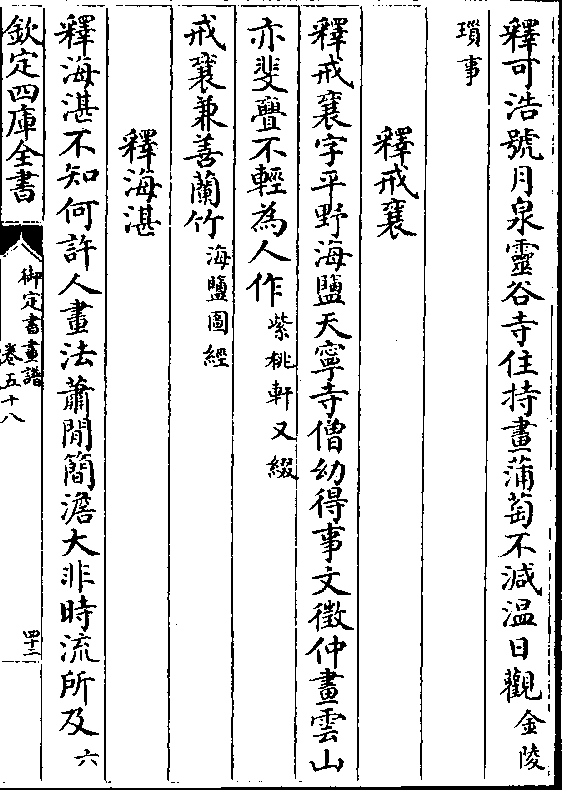 釋可浩號月泉靈谷寺住持畫蒲萄不減温日觀金陵
瑣事
釋戒襄
釋戒襄字平野海鹽天寧寺僧幼得事文徴仲畫雲山
亦斐亹不輕為人作紫桃軒又綴
戒襄兼善蘭竹海鹽圖經
釋海湛
釋海湛不知何許人畫法蕭閒簡澹大非時流所及六
欽定四庫全書
御定書畫譜
卷五十八
四十二